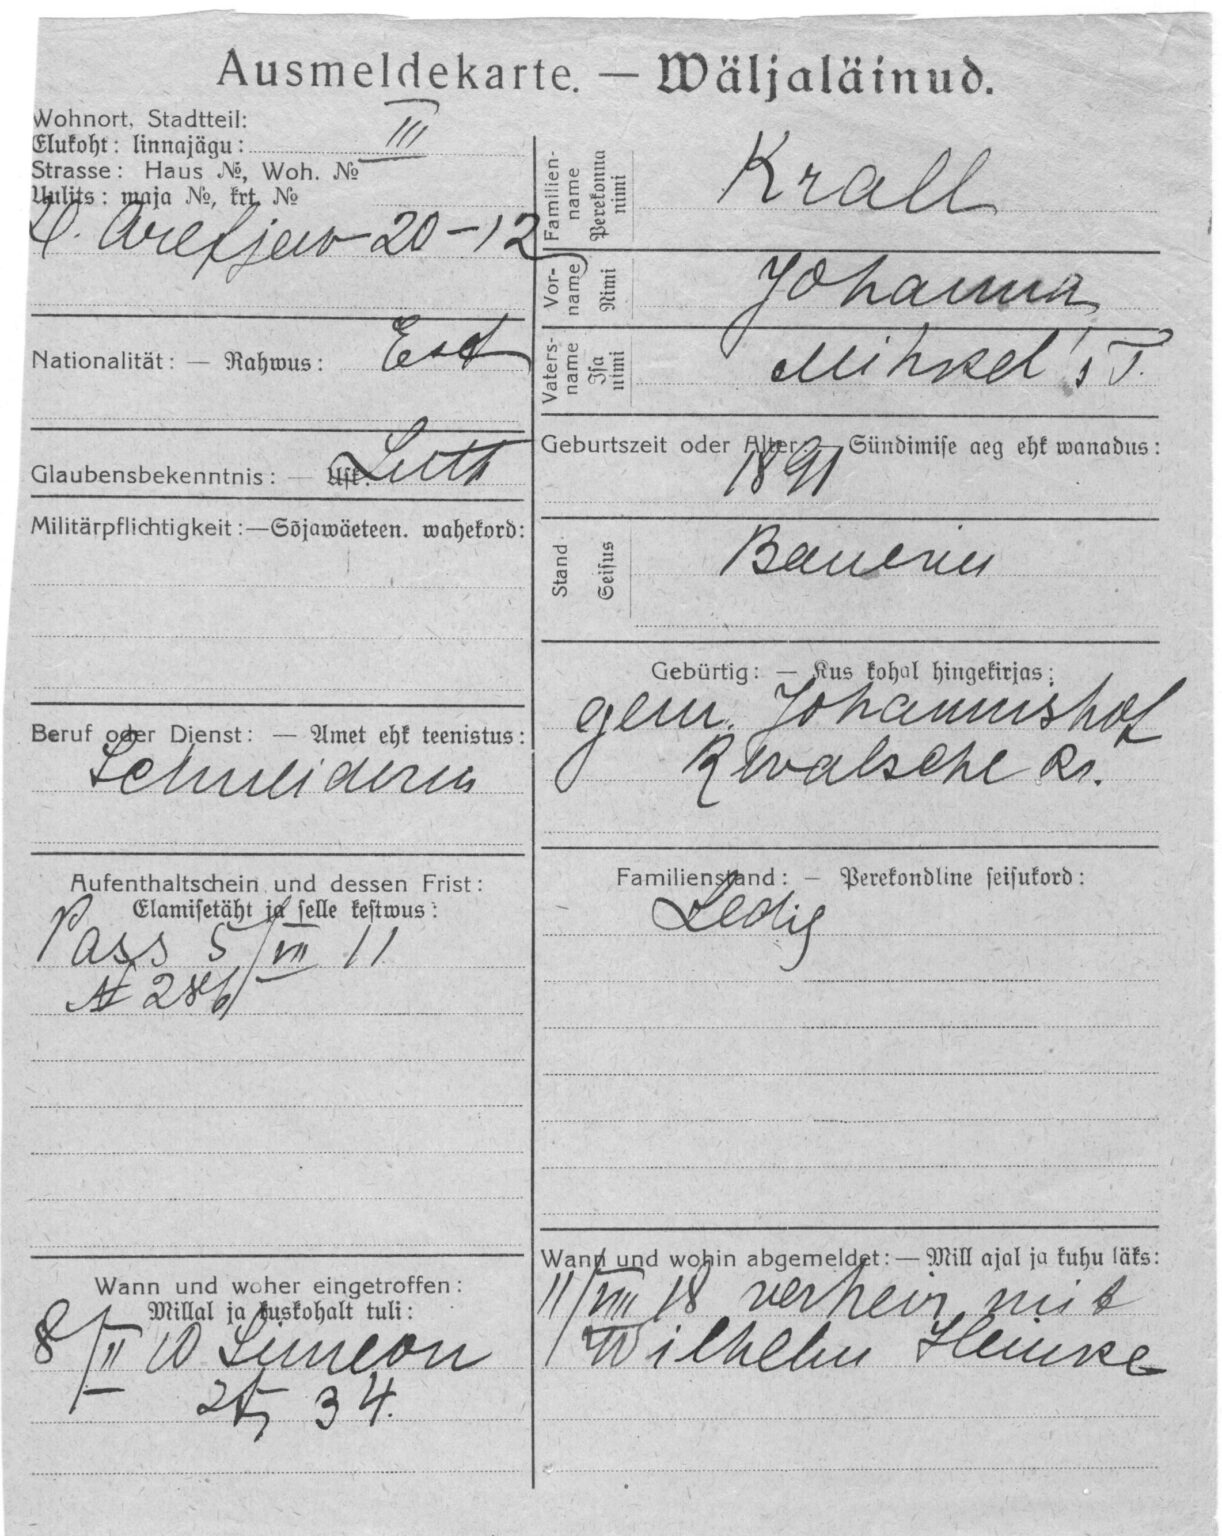 Ausmeldekarte. — Wäljaläinud.
Wohnort, Stadtteil:
Elukoht: linnajägu: III
Strasse: Haus №, Woh. №
Uulits: maja №, krt. №
Arefjew 20-12
Nationalität: — Rahwus: Est
Glaubensbekenntnis: — Usk: Luth
Militärpflichtigkeit: — Sõjawäeteen. wahekord:
Beruf oder Dienst: — Amet ehk teenistus:
Schneiderin
Aufenthaltschein und dessen Frist:
Elamisetäht ja selle kestwus:
Pass 5/VII 11
№ 286
Wann und woher eingetroffen:
Millal ja kuskohalt tuli:
8/II 10 Simeon
34.
Familien-
name
Perekonna
nimi
Krall
Vor-
name
Nimi
Johanna
Vaters-
name
Isa
nimi
Mihkel's T.
Geburtszeit oder Alter: — Sündimise aeg ehk wanadus:
1891
Stand
Seisus
Bauerin
Gebürtig: — Kus kohal hingekirjas:
gem. Johannishof
Rewalsche Kr.
Familienstand: — Perekondline seisukord:
Ledig
Wann und wohin abgemeldet: — Mill ajal ja kuhu läks:
11/VIII 18 verheir. mit
Wilhelm Heinke